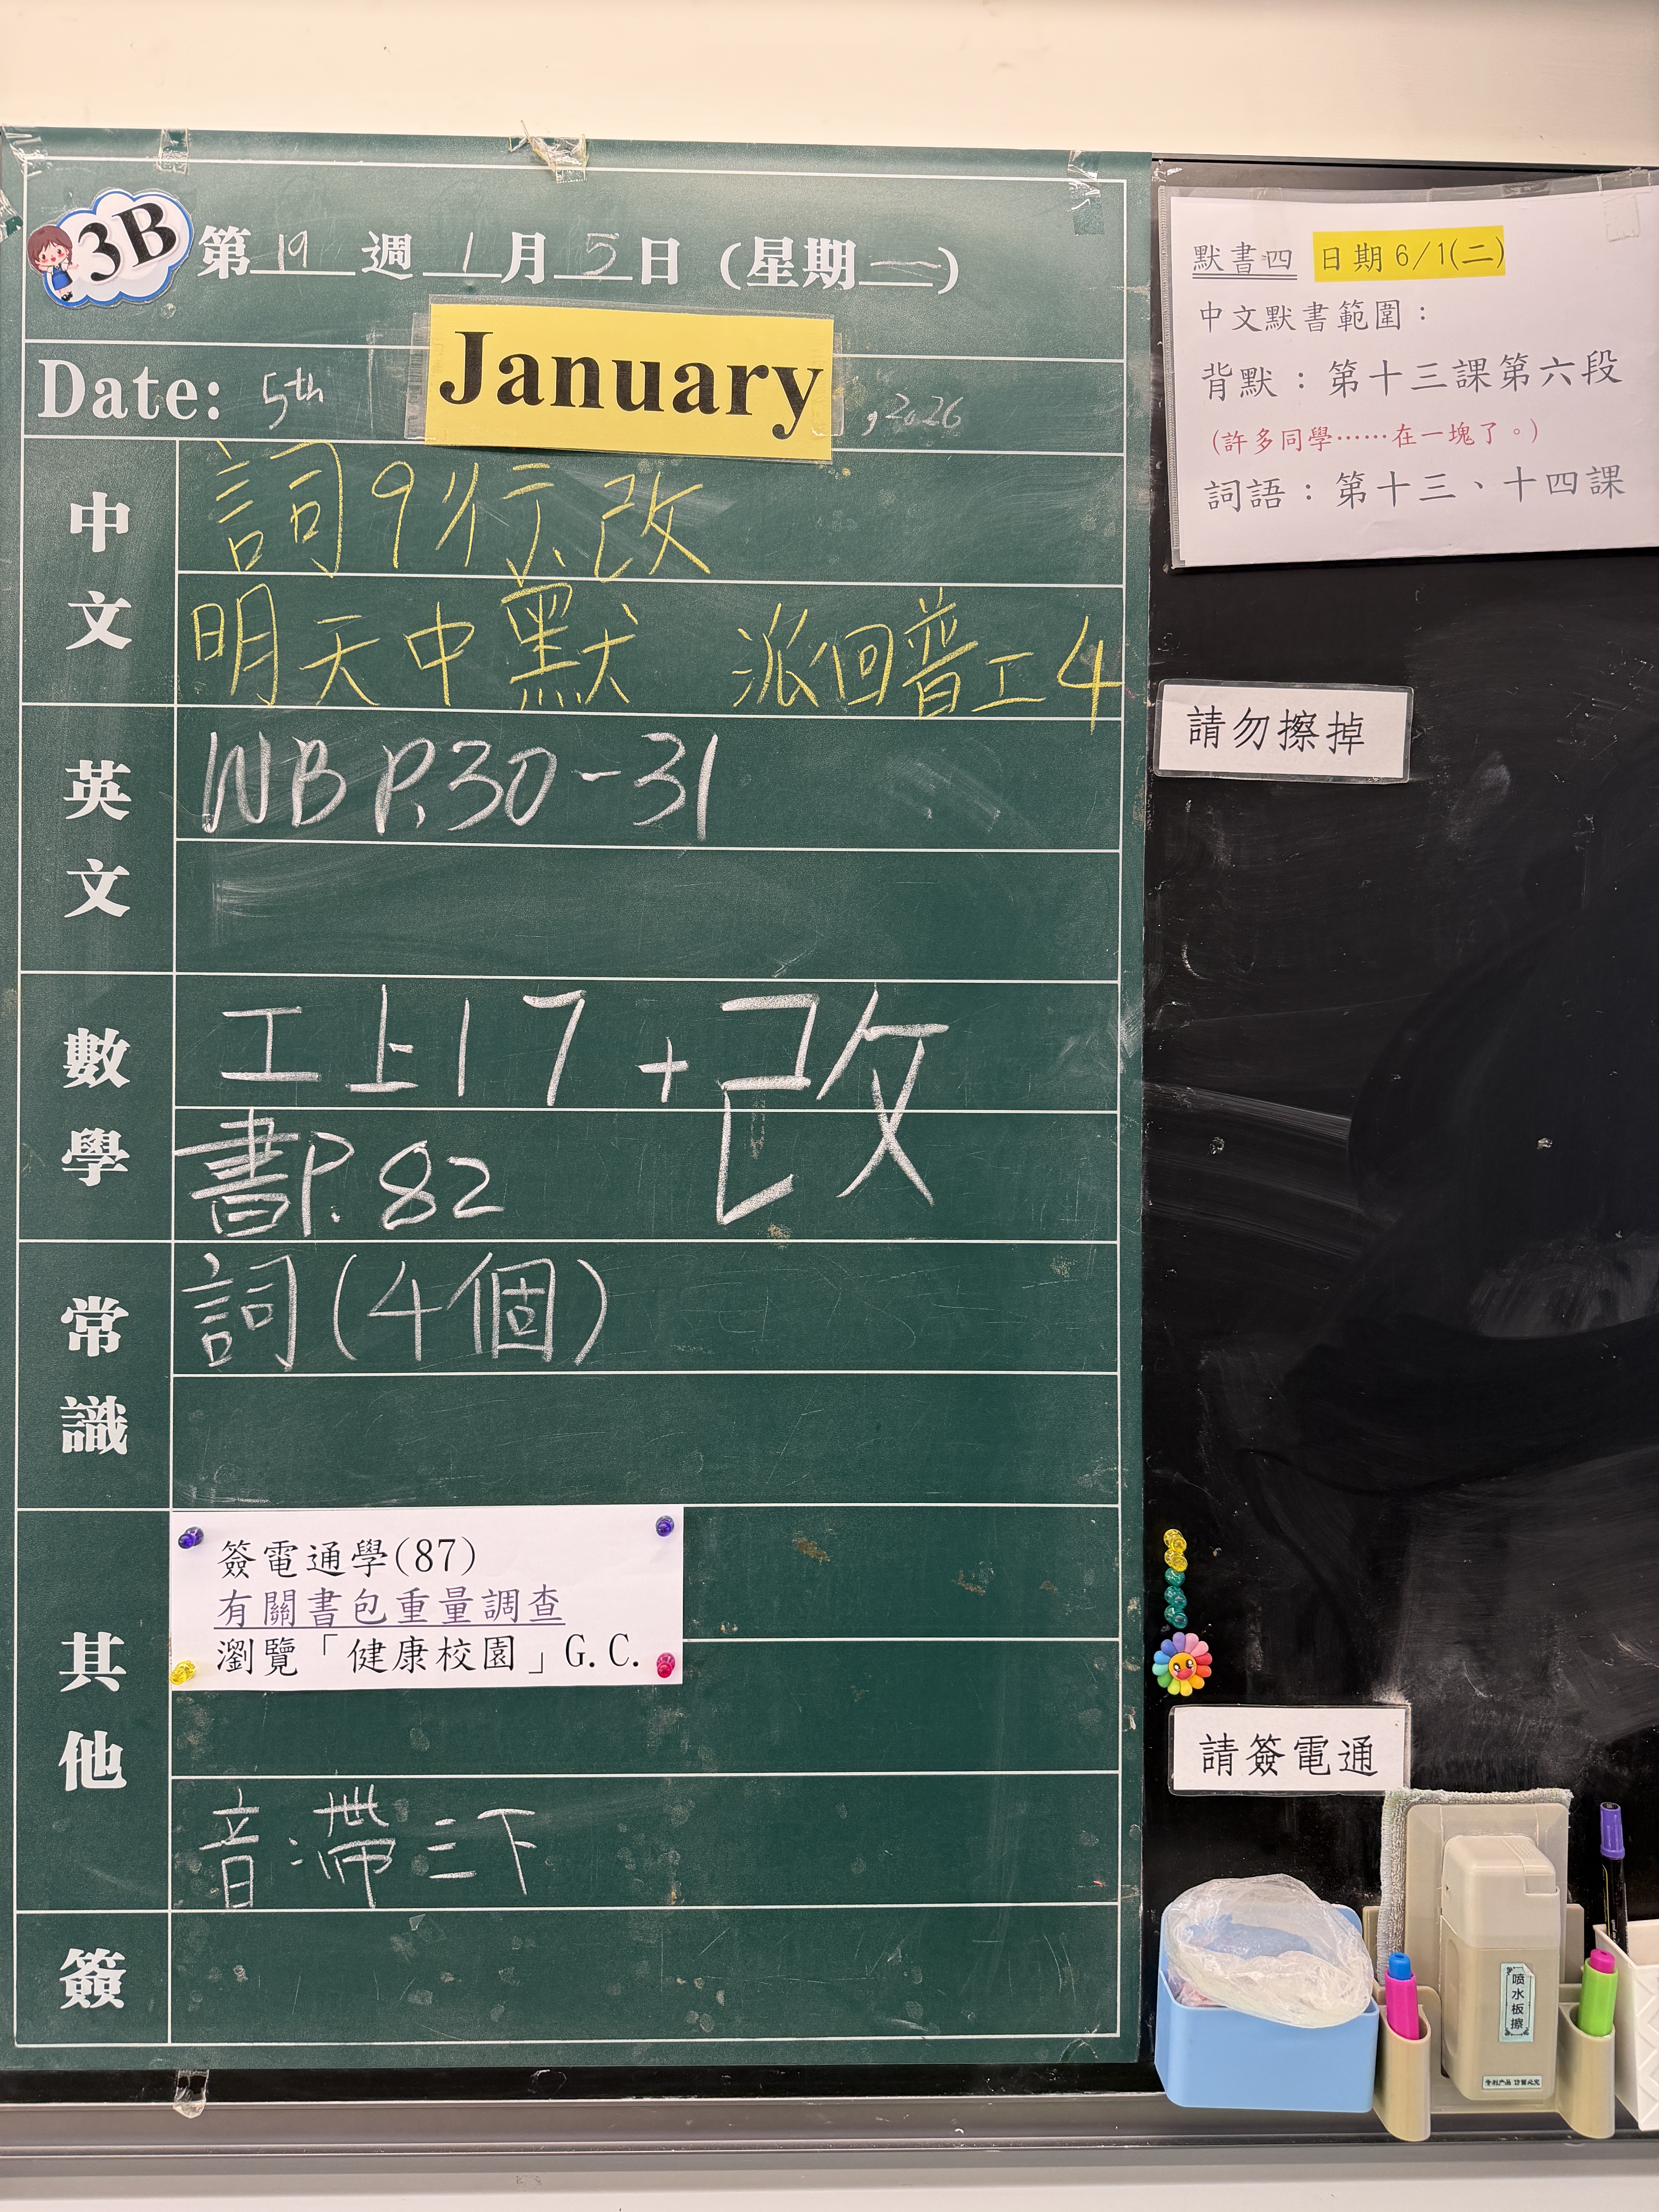 3B 第 19 週 1 月 5 日 (星期一)
Date: 5th January , 2026
中文
詞9行、改
明天中默 派回普工4
英文
WB P.30-31
數學
工上17 + 改
書P.82
常識
詞(4個)
其他
簽電通學(87)
有關書包重量調查
瀏覽「健康校園」G.C.
音:帶三下
簽
默書四 日期 6/1(二)
中文默書範圍：
背默：第十三課第六段
(許多同學……在一塊了。)
詞語：第十三、十四課
請勿擦掉
請簽電通
喷水板擦